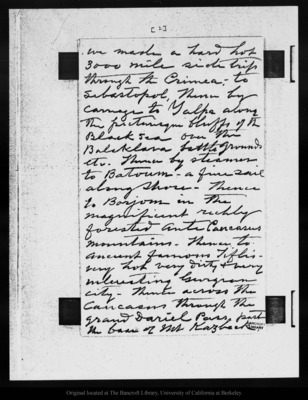 [2]
we made a hard hot
3000 mile side trip
through the Crimea - to
Sebastopol, thence by
carriage to Yalta along
the picturesque bluffs of the
Black Sea over the
Balaklava battle grounds
etc. Thence by steamer
to Batoum - a fine sail
along shore - thence
to Borjom in the
magnificent richly
forested Anti Caucasus
mountains. Thence to
ancient famous Tiflis -
very hot very dirty & very
interesting
city - Thence across the
Caucasus through the
grand Dariel Pass, past
the base of Mt Kazbeck
Original located at The Bancroft Library, University of California at Berkeley